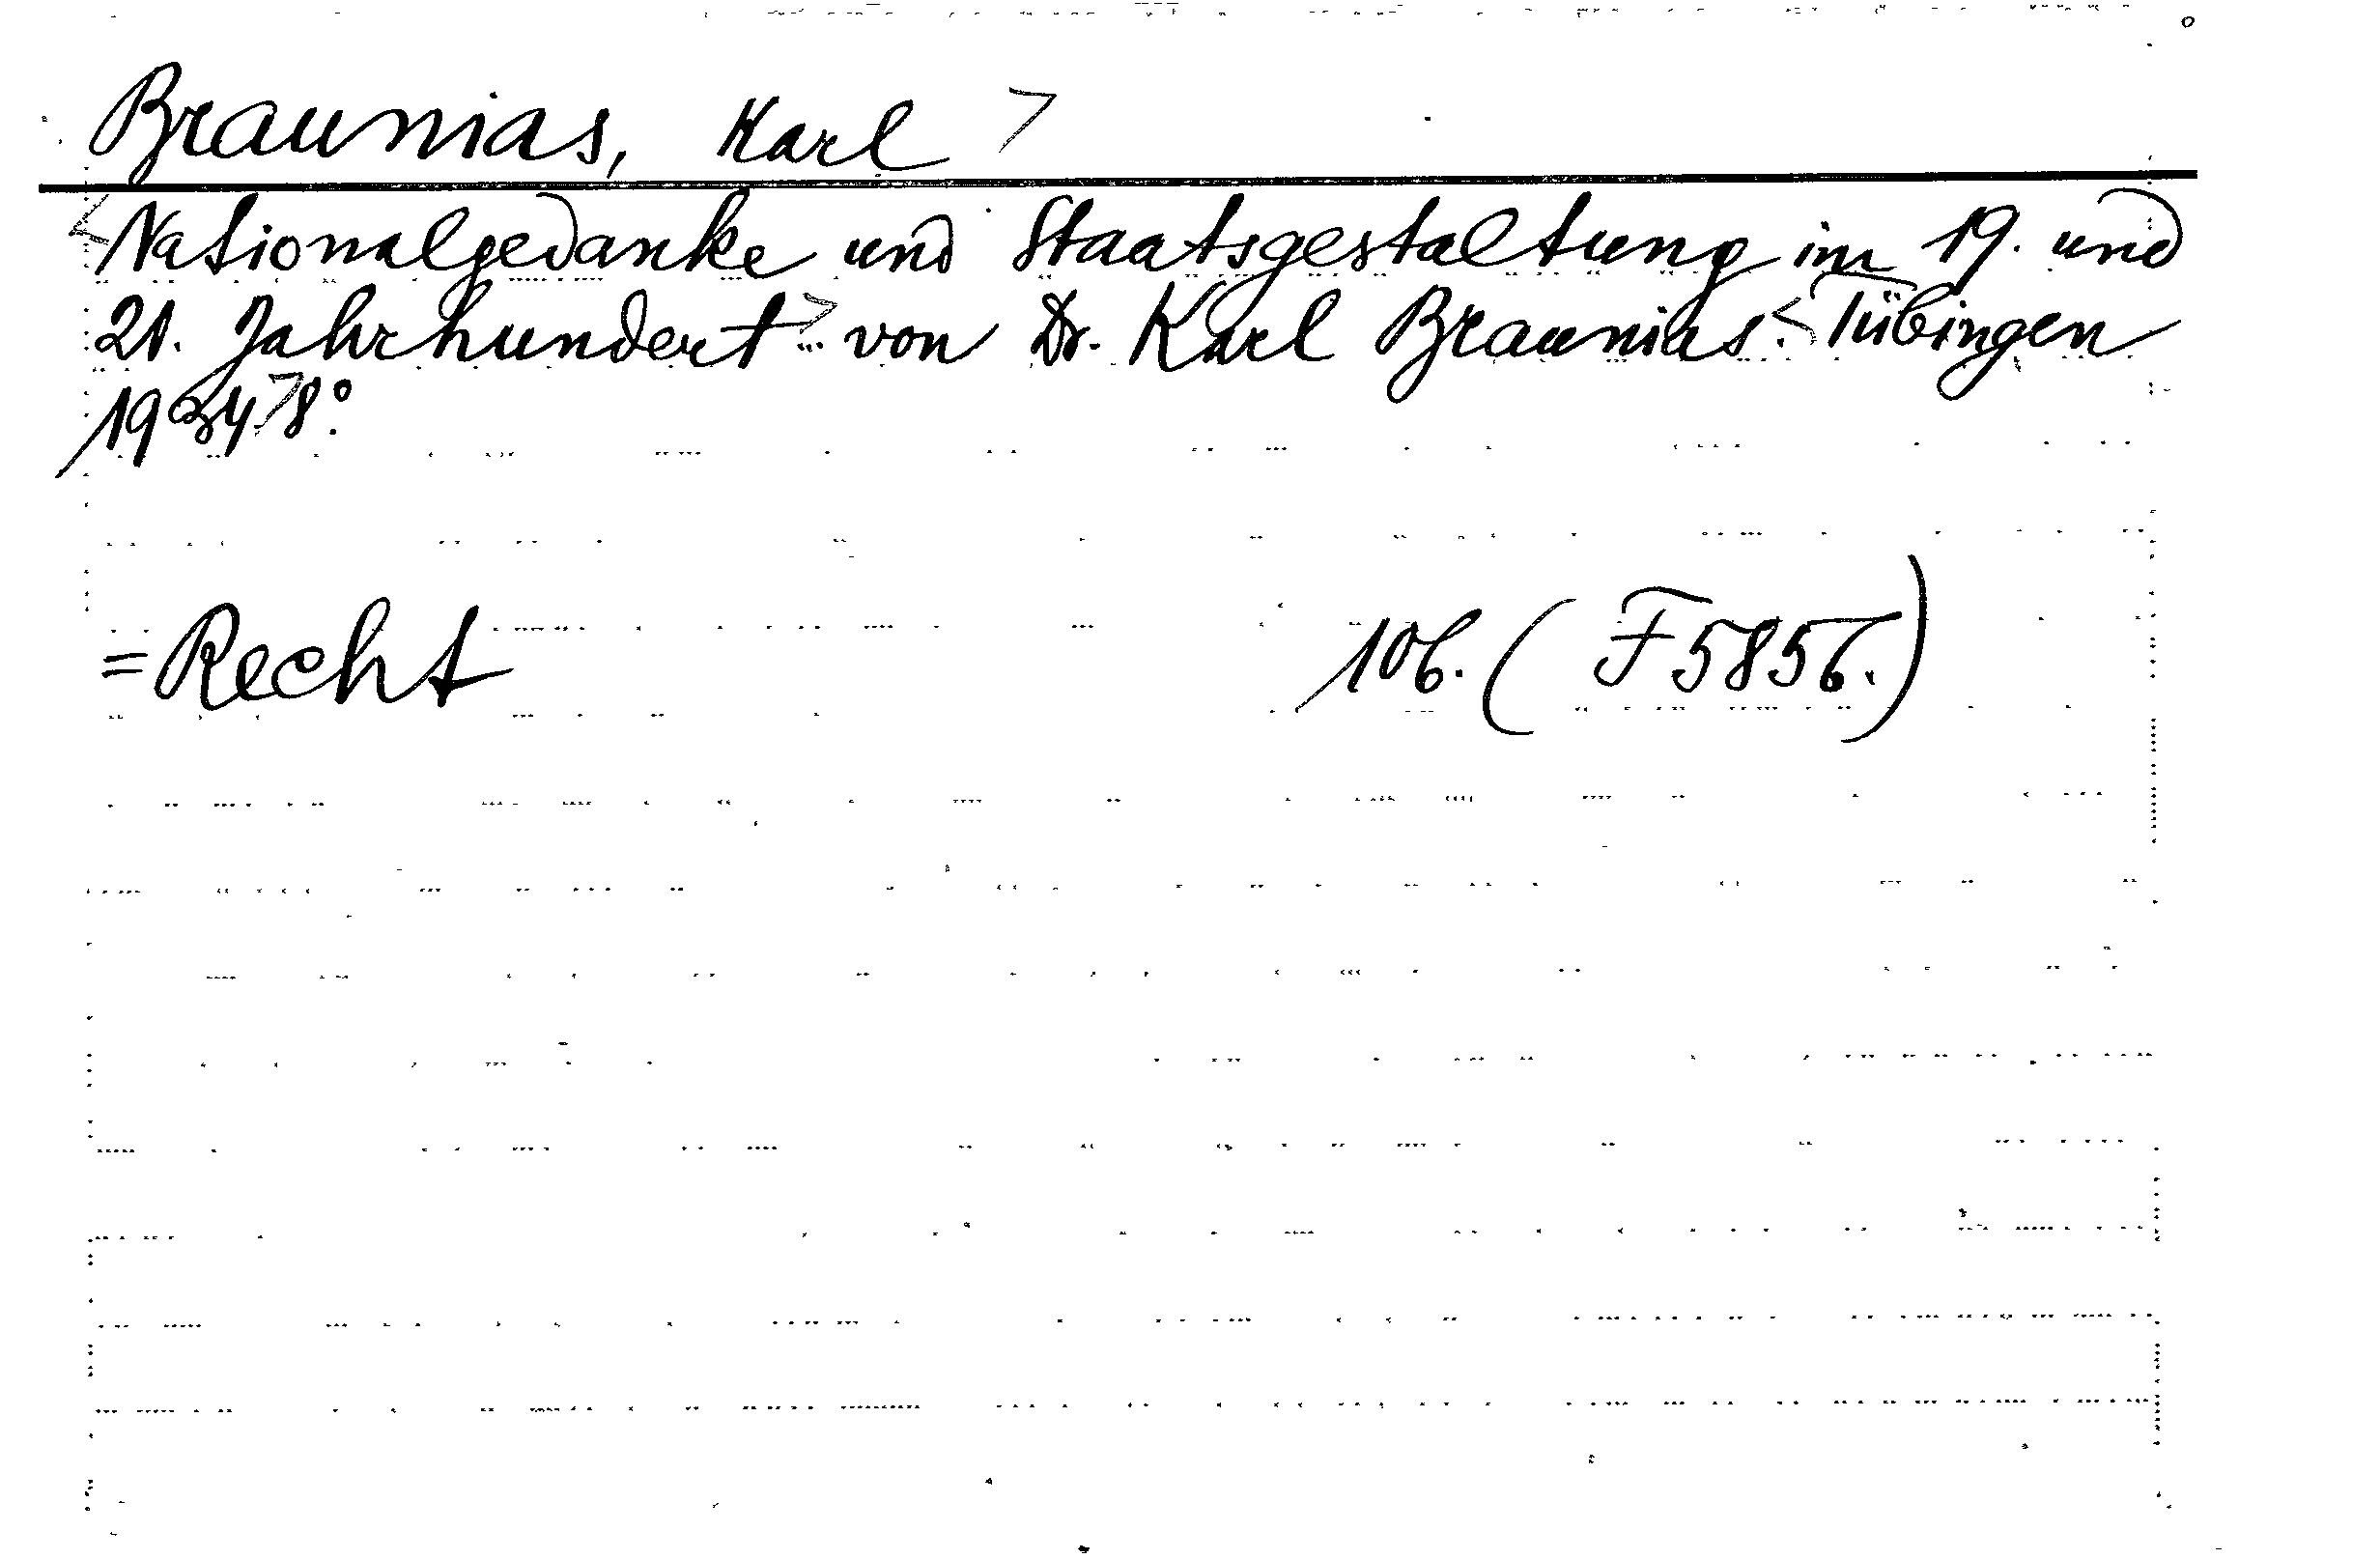 Braunias, Karl >
<Nationalgedanke und Staatsgestaltung im 19. und
21. Jahrhundert> von Dr. Karl Braunias. <Tübingen
1934> 8°.
=Recht 106. (F5856.)